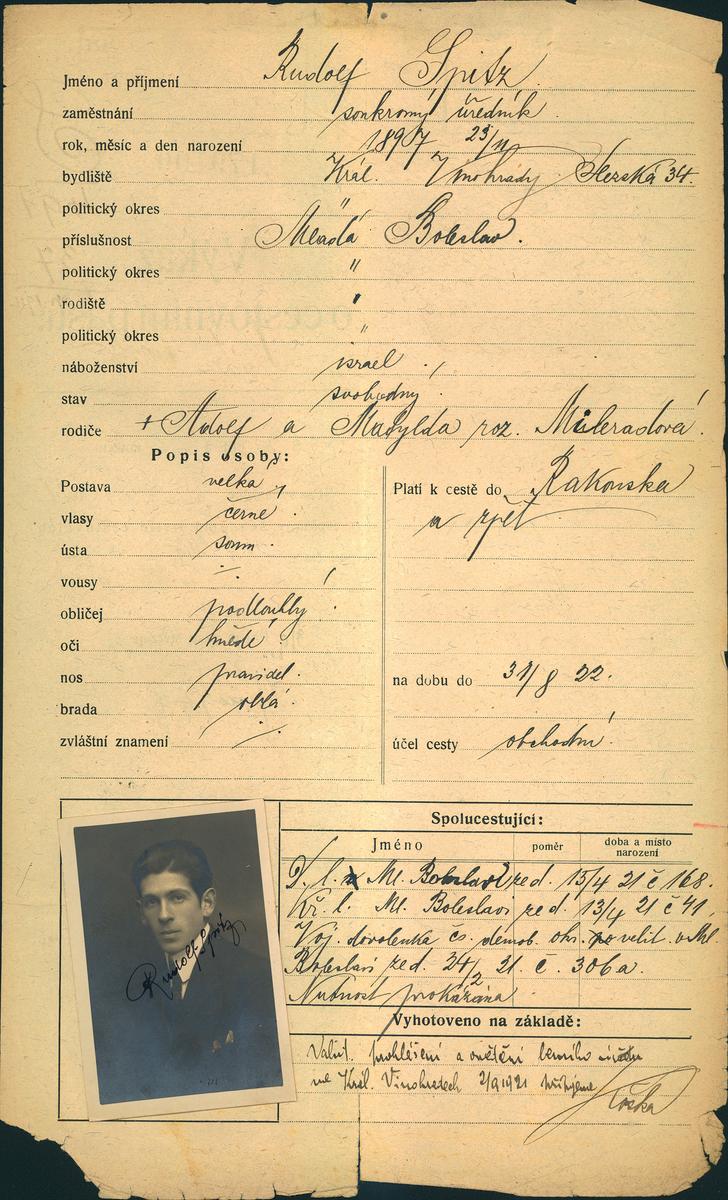 Jméno a příjmení Rudolf Spitz
zaměstnání soukromý úředník
rok, měsíc a den narození 1897 23/11
bydliště Král. Vinohrady Slezská 34.
politický okres "
příslušnost Mladá Boleslav.
politický okres "
rodiště "
politický okres "
náboženství israel.
stav svobodný
rodiče + Adolf a Matylda roz.
Popis osoby:
Postava velká
vlasy černé.
ústa soum.
vousy
obličej podlouhlý
oči hnědé
nos pravidel.
brada oblá
zvláštní znamení
Platí k cestě do Rakouska
a zpět
na dobu do 31/8 22.
účel cesty obchodní
Spolucestující:
Jméno poměr doba a místo narození
D. l. Ml. Boleslavi ze d. 15/4 21 č 168.
Kř. l. Ml. Boleslavi ze d. 13/4 21 č 41.
Voj. dovolenka čs. demob. okr. velit. v Ml.
Boleslavi ze d. 24/2 21. č. 306a.
Nutnost prokázána
Vyhotoveno na základě:
Valut. prohlášení a berního
na Král. Vinohradech 2/9 1921 připojena
Rudolf Spitz